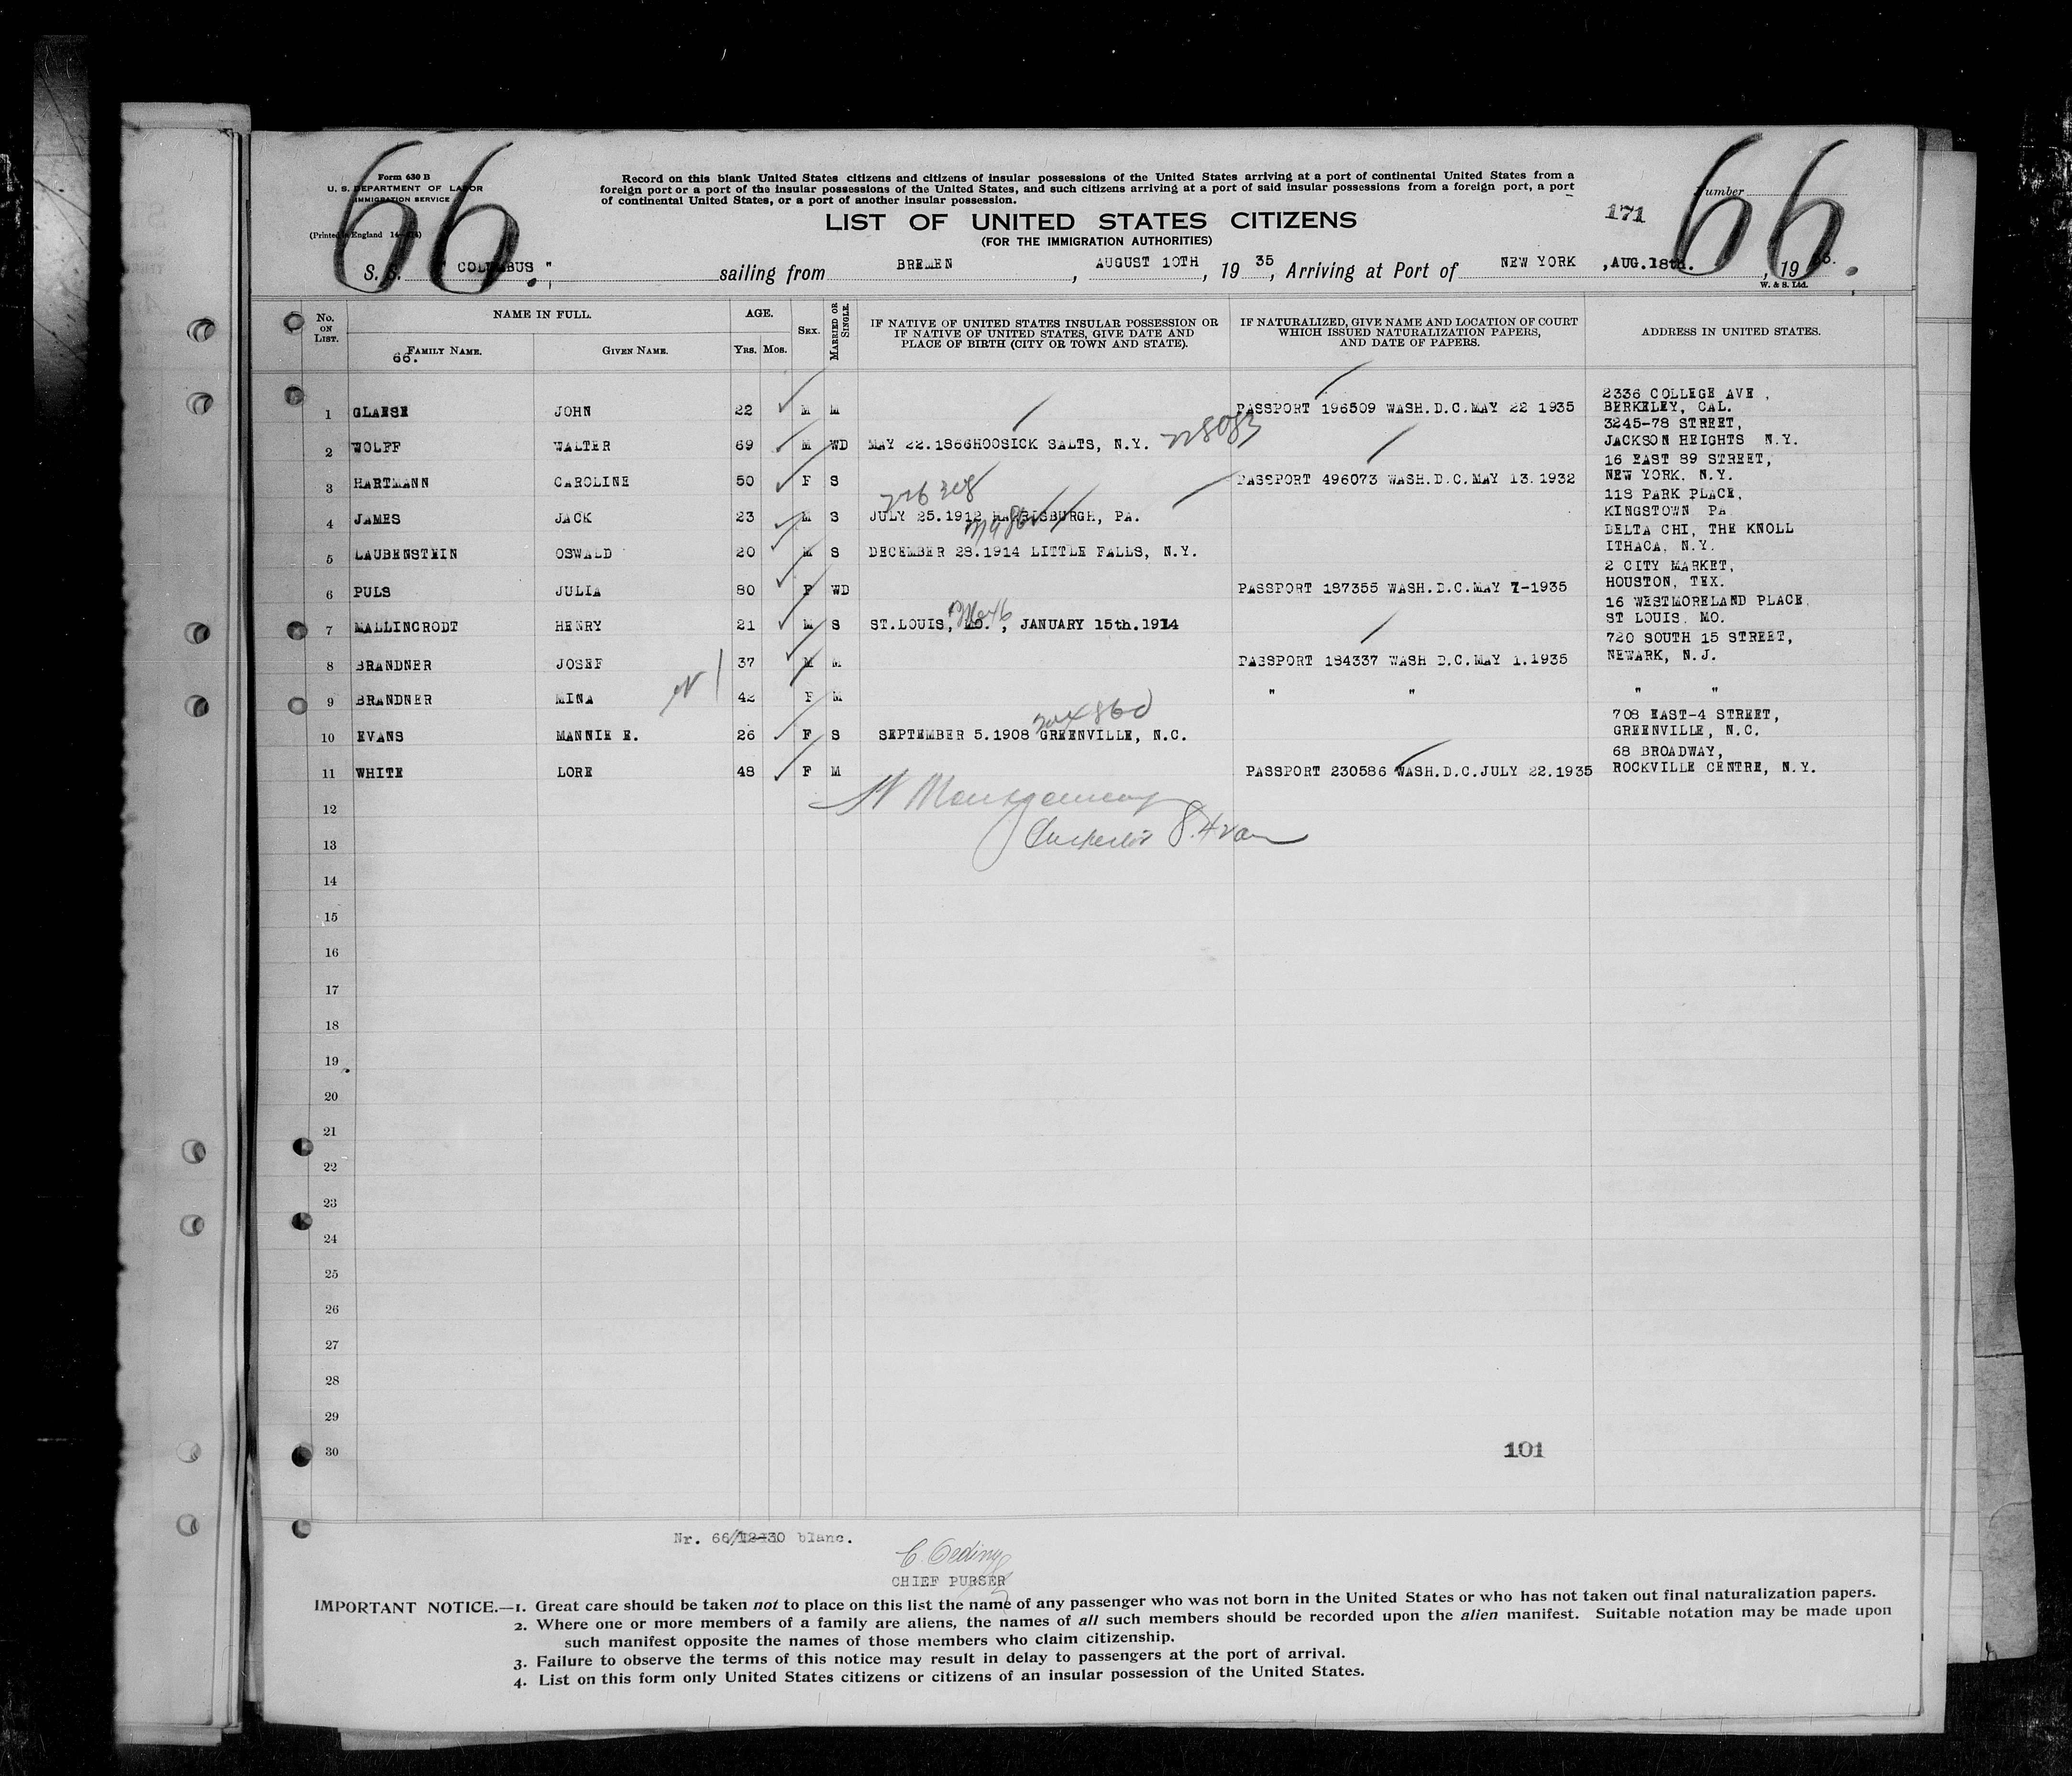 66.
66.
Form 630 B
U. S. DEPARTMENT OF LABOR
IMMIGRATION SERVICE
Record on this blank United States citizens and citizens of insular possessions of the United States arriving at a port of continental United States from a
foreign port or a port of the insular possessions of the United States, and such citizens arriving at a port of said insular possessions from a foreign port, a port
of continental United States, or a port of another insular possession.
Number
171
LIST OF UNITED STATES CITIZENS
(FOR THE IMMIGRATION AUTHORITIES)
S. S. " COLUMBUS " sailing from BREMEN, AUGUST 10TH, 19 35, Arriving at Port of NEW YORK ,AUG.18th., 19
W. & S. Ltd.
No. ON LIST. NAME IN FULL. AGE. SEX. MARRIED OR SINGLE. IF NATIVE OF UNITED STATES INSULAR POSSESSION OR IF NATIVE OF UNITED STATES, GIVE DATE AND PLACE OF BIRTH (CITY OR TOWN AND STATE). IF NATURALIZED, GIVE NAME AND LOCATION OF COURT WHICH ISSUED NATURALIZATION PAPERS, AND DATE OF PAPERS. ADDRESS IN UNITED STATES.
FAMILY NAME. GIVEN NAME. YRS. MOS.
66.
2336 COLLEGE AVE ,
1 GLAESE JOHN 22 M M PASSPORT 196509 WASH.D.C.MAY 22 1935 BERKELEY, CAL.
3245-78 STREET,
2 WOLFF WALTER 69 M WD MAY 22.1866HOOSICK SALTS, N.Y. 228083 JACKSON HEIGHTS N.Y.
16 EAST 89 STREET,
3 HARTMANN CAROLINE 50 F S PASSPORT 496073 WASH.D.C.MAY 13.1932 NEW YORK. N.Y.
118 PARK PLACE,
4 JAMES JACK 23 M S JULY 25.1912 HARRISBURGH, PA. KINGSTOWN PA
DELTA CHI, THE KNOLL
5 LAUBENSTEIN OSWALD 20 M S DECEMBER 28.1914 LITTLE FALLS, N.Y. ITHACA, N.Y.
2 CITY MARKET,
6 PULS JULIA 80 F WD PASSPORT 187355 WASH.D.C.MAY 7-1935 HOUSTON, TEX.
16 WESTMORELAND PLACE,
7 MALLINCRODT HENRY 21 M S ST.LOUIS, MO. , JANUARY 15th.1914 ST LOUIS, MO.
720 SOUTH 15 STREET,
8 BRANDNER JOSEF 37 M M PASSPORT 184337 WASH D.C.MAY 1.1935 NEWARK, N.J.
9 BRANDNER MINA 42 F M " " " "
708 EAST-4 STREET,
10 EVANS MANNIE E. 26 F S SEPTEMBER 5.1908 GREENVILLE, N.C. GREENVILLE, N.C.
68 BROADWAY,
11 WHITE LORE 48 F M PASSPORT 230586 WASH.D.C.JULY 22.1935 ROCKVILLE CENTRE, N.Y.
12 Montgomery
13
14
15
16
17
18
19
20
21
22
23
24
25
26
27
28
29
30 101
Nr. 66/12-30 blanc.
CHIEF PURSER
IMPORTANT NOTICE.—1. Great care should be taken not to place on this list the name of any passenger who was not born in the United States or who has not taken out final naturalization papers.
2. Where one or more members of a family are aliens, the names of all such members should be recorded upon the alien manifest. Suitable notation may be made upon
such manifest opposite the names of those members who claim citizenship.
3. Failure to observe the terms of this notice may result in delay to passengers at the port of arrival.
4. List on this form only United States citizens or citizens of an insular possession of the United States.